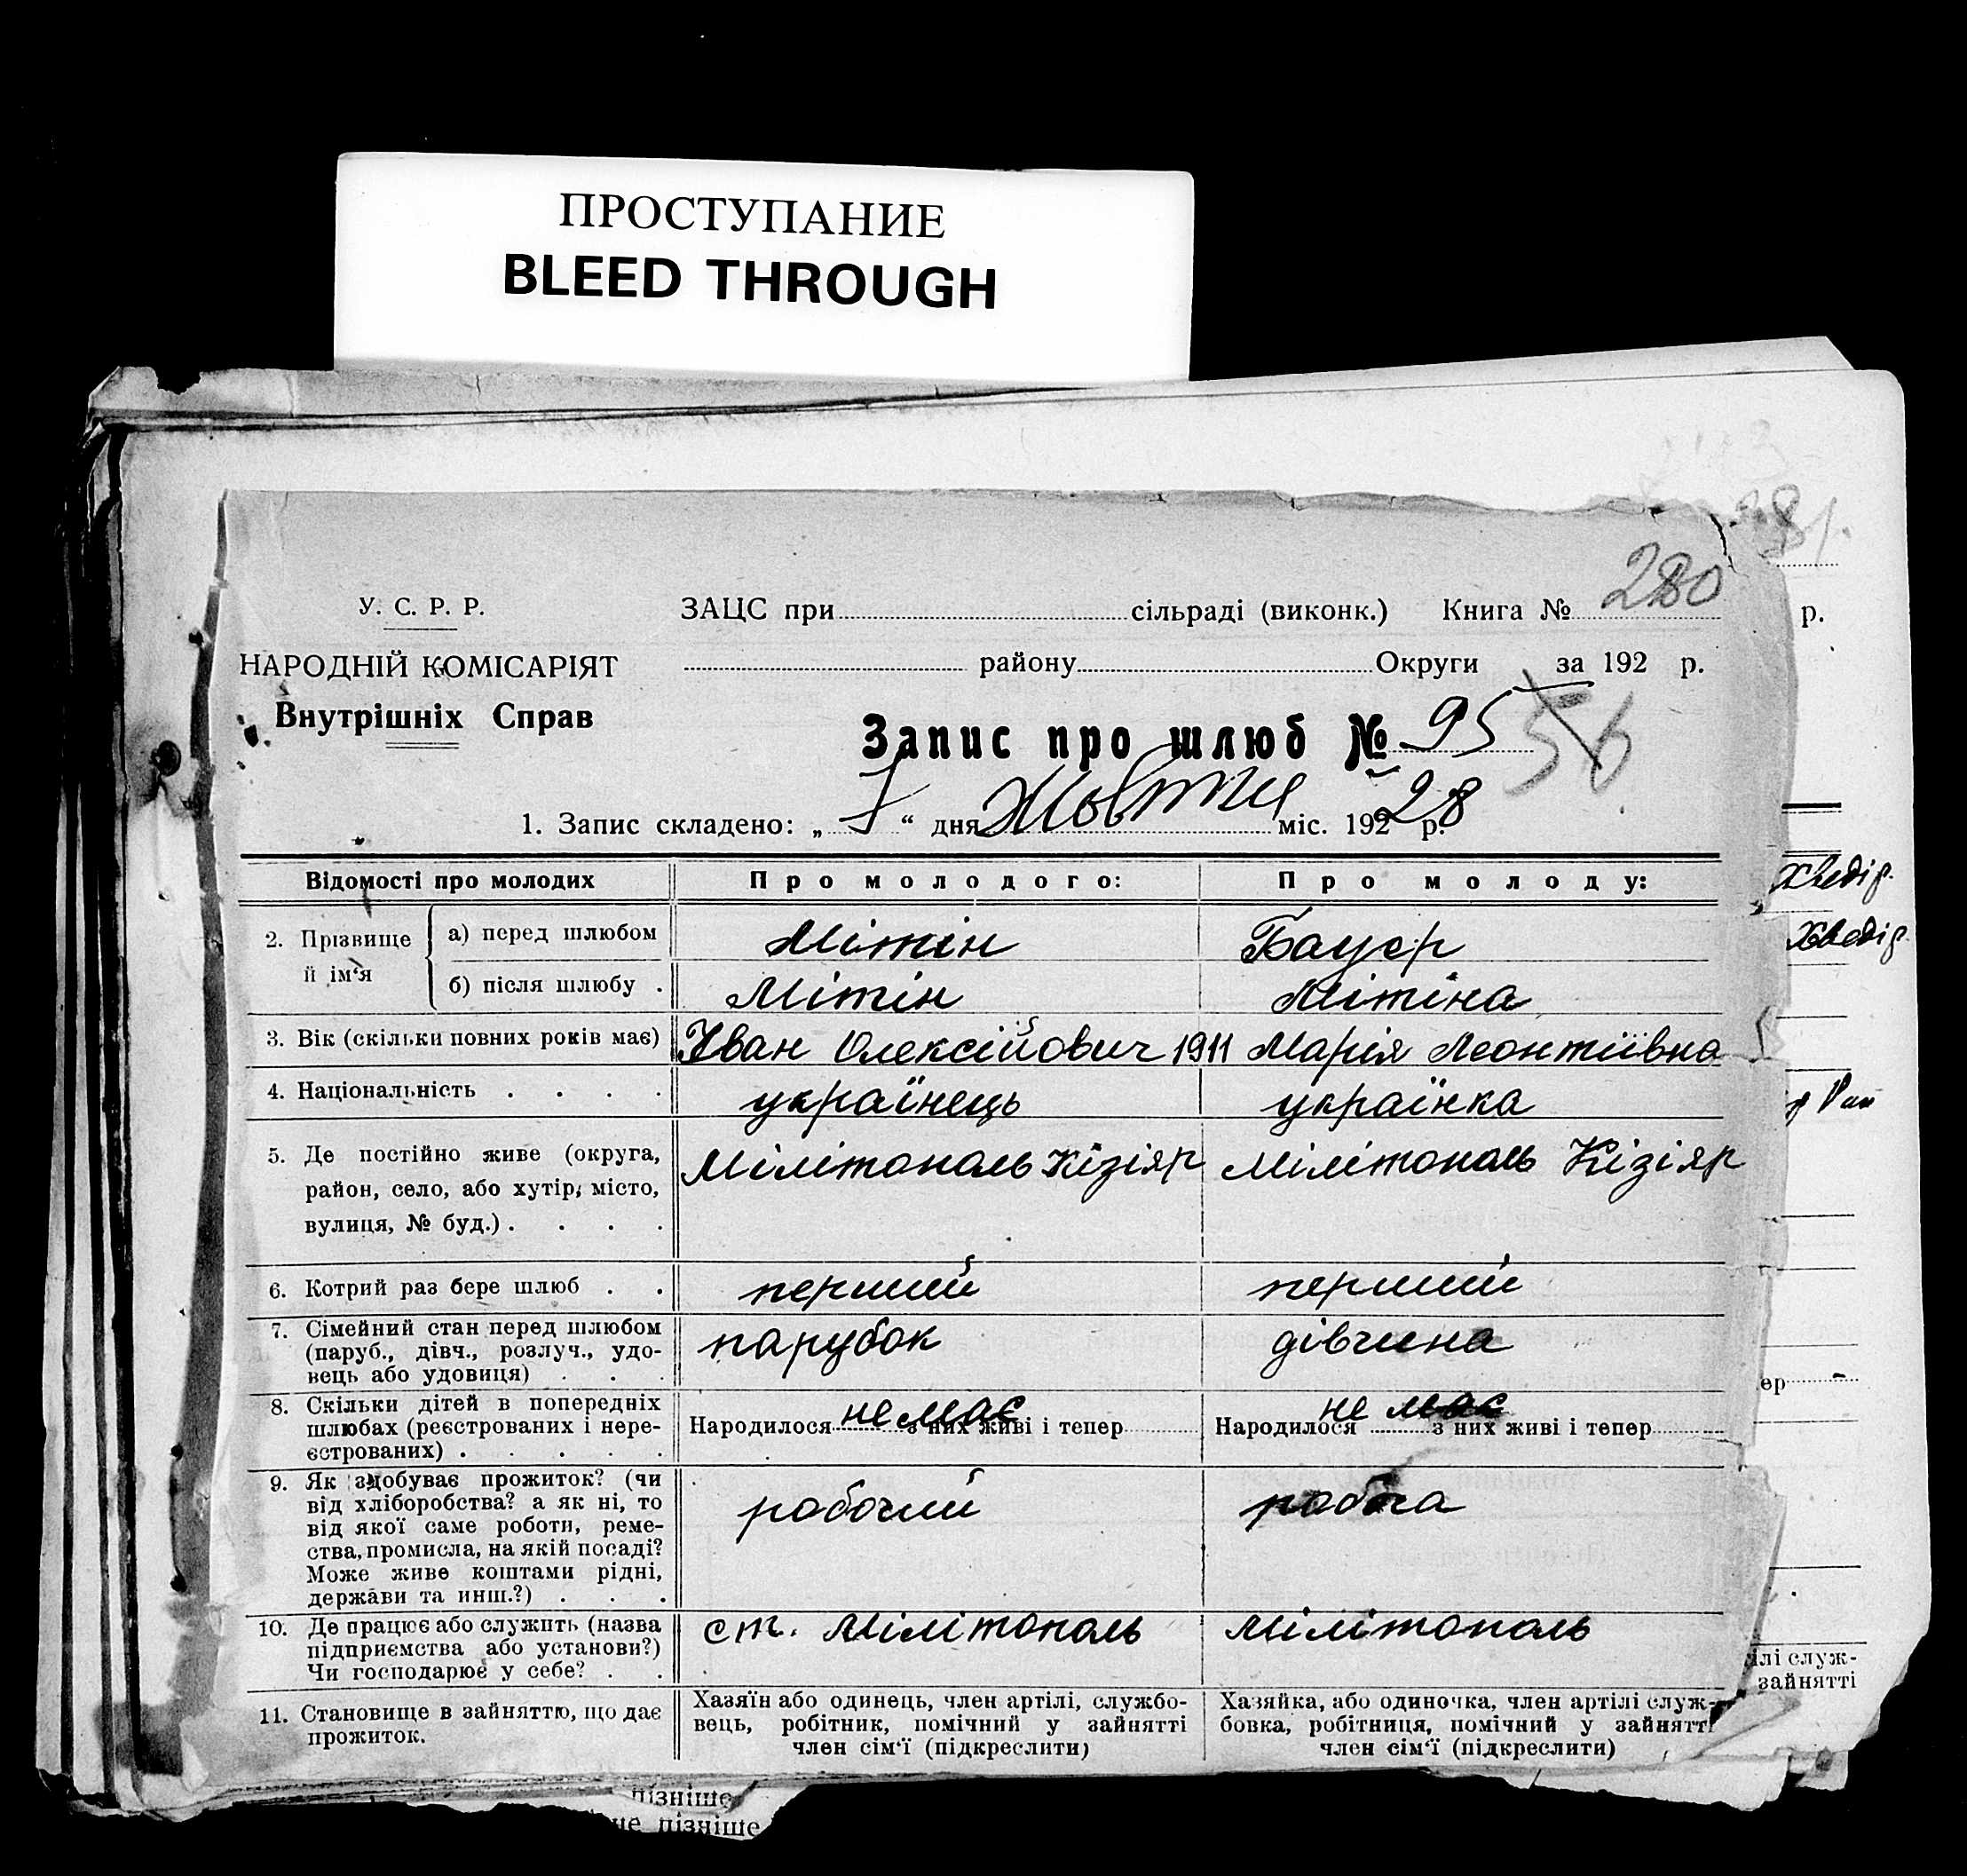 ПРОСТУПАНИЕ
BLEED THROUGH
У. С. Р. Р.
ЗАЦС при сільраді (виконк.) Книга № 280
р.
НАРОДНІЙ КОМІСАРІЯТ
району Округи за 192 р.
Внутрішніх Справ
Запис про шлюб № 95 56
1. Запис складено: „ “ дня Жовтня міс. 192 28 р.
Відомості про молодих
Про молодого:
Про молоду:
2. Прізвище й ім‘я
а) перед шлюбом
Мітін
Бауер
б) після шлюбу .
Мітін
Мітіна
3. Вік (скільки повних років має)
Іван Олексійович 1911
Марія Леонтіівна
4. Національність . . . .
українець
українка
5. Де постійно живе (округа,
район, село, або хутір, місто,
вулиця, № буд.) . . . .
Мілітополь Кізіяр
Мілітополь Кізіяр
6. Котрий раз бере шлюб . .
перший
перший
7. Сімейний стан перед шлюбом
(паруб., дівч., розлуч., удо-
вець або удовиця) . . .
парубок
дівчина
8. Скільки дітей в попередніх
шлюбах (реєстрованих і нере-
єстрованих) . . . . .
Народилося не має з них живі і тепер
Народилося не має з них живі і тепер
ер
9. Як здобуває прожиток? (чи
від хліборобства? а як ні, то
від якої саме роботи, реме-
ства, промисла, на якій посаді?
Може живе коштами рідні,
держави та инш.?) . . .
робочий
10. Де працює або служить (назва
підприємства або установи?)
Чи господарює у себе? . .
ст. Мілітополь
Мілітополь
11. Становище в зайняттю, що дає
прожиток.
Хазяїн або одинець, член артілі, службо-
вець, робітник, помічний у зайнятті
член сім‘ї (підкреслити)
Хазяйка, або одиночка, член артілі служ-
бовка, робітниця, помічний у зайнятті
член сім‘ї (підкреслити)
ілі служ-
зайнятті
пізніше
не пізніше